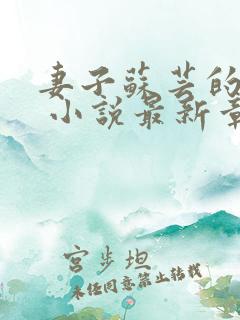 妻子蘇芸的
小說最新章
宮步坦
未经同意禁止转载